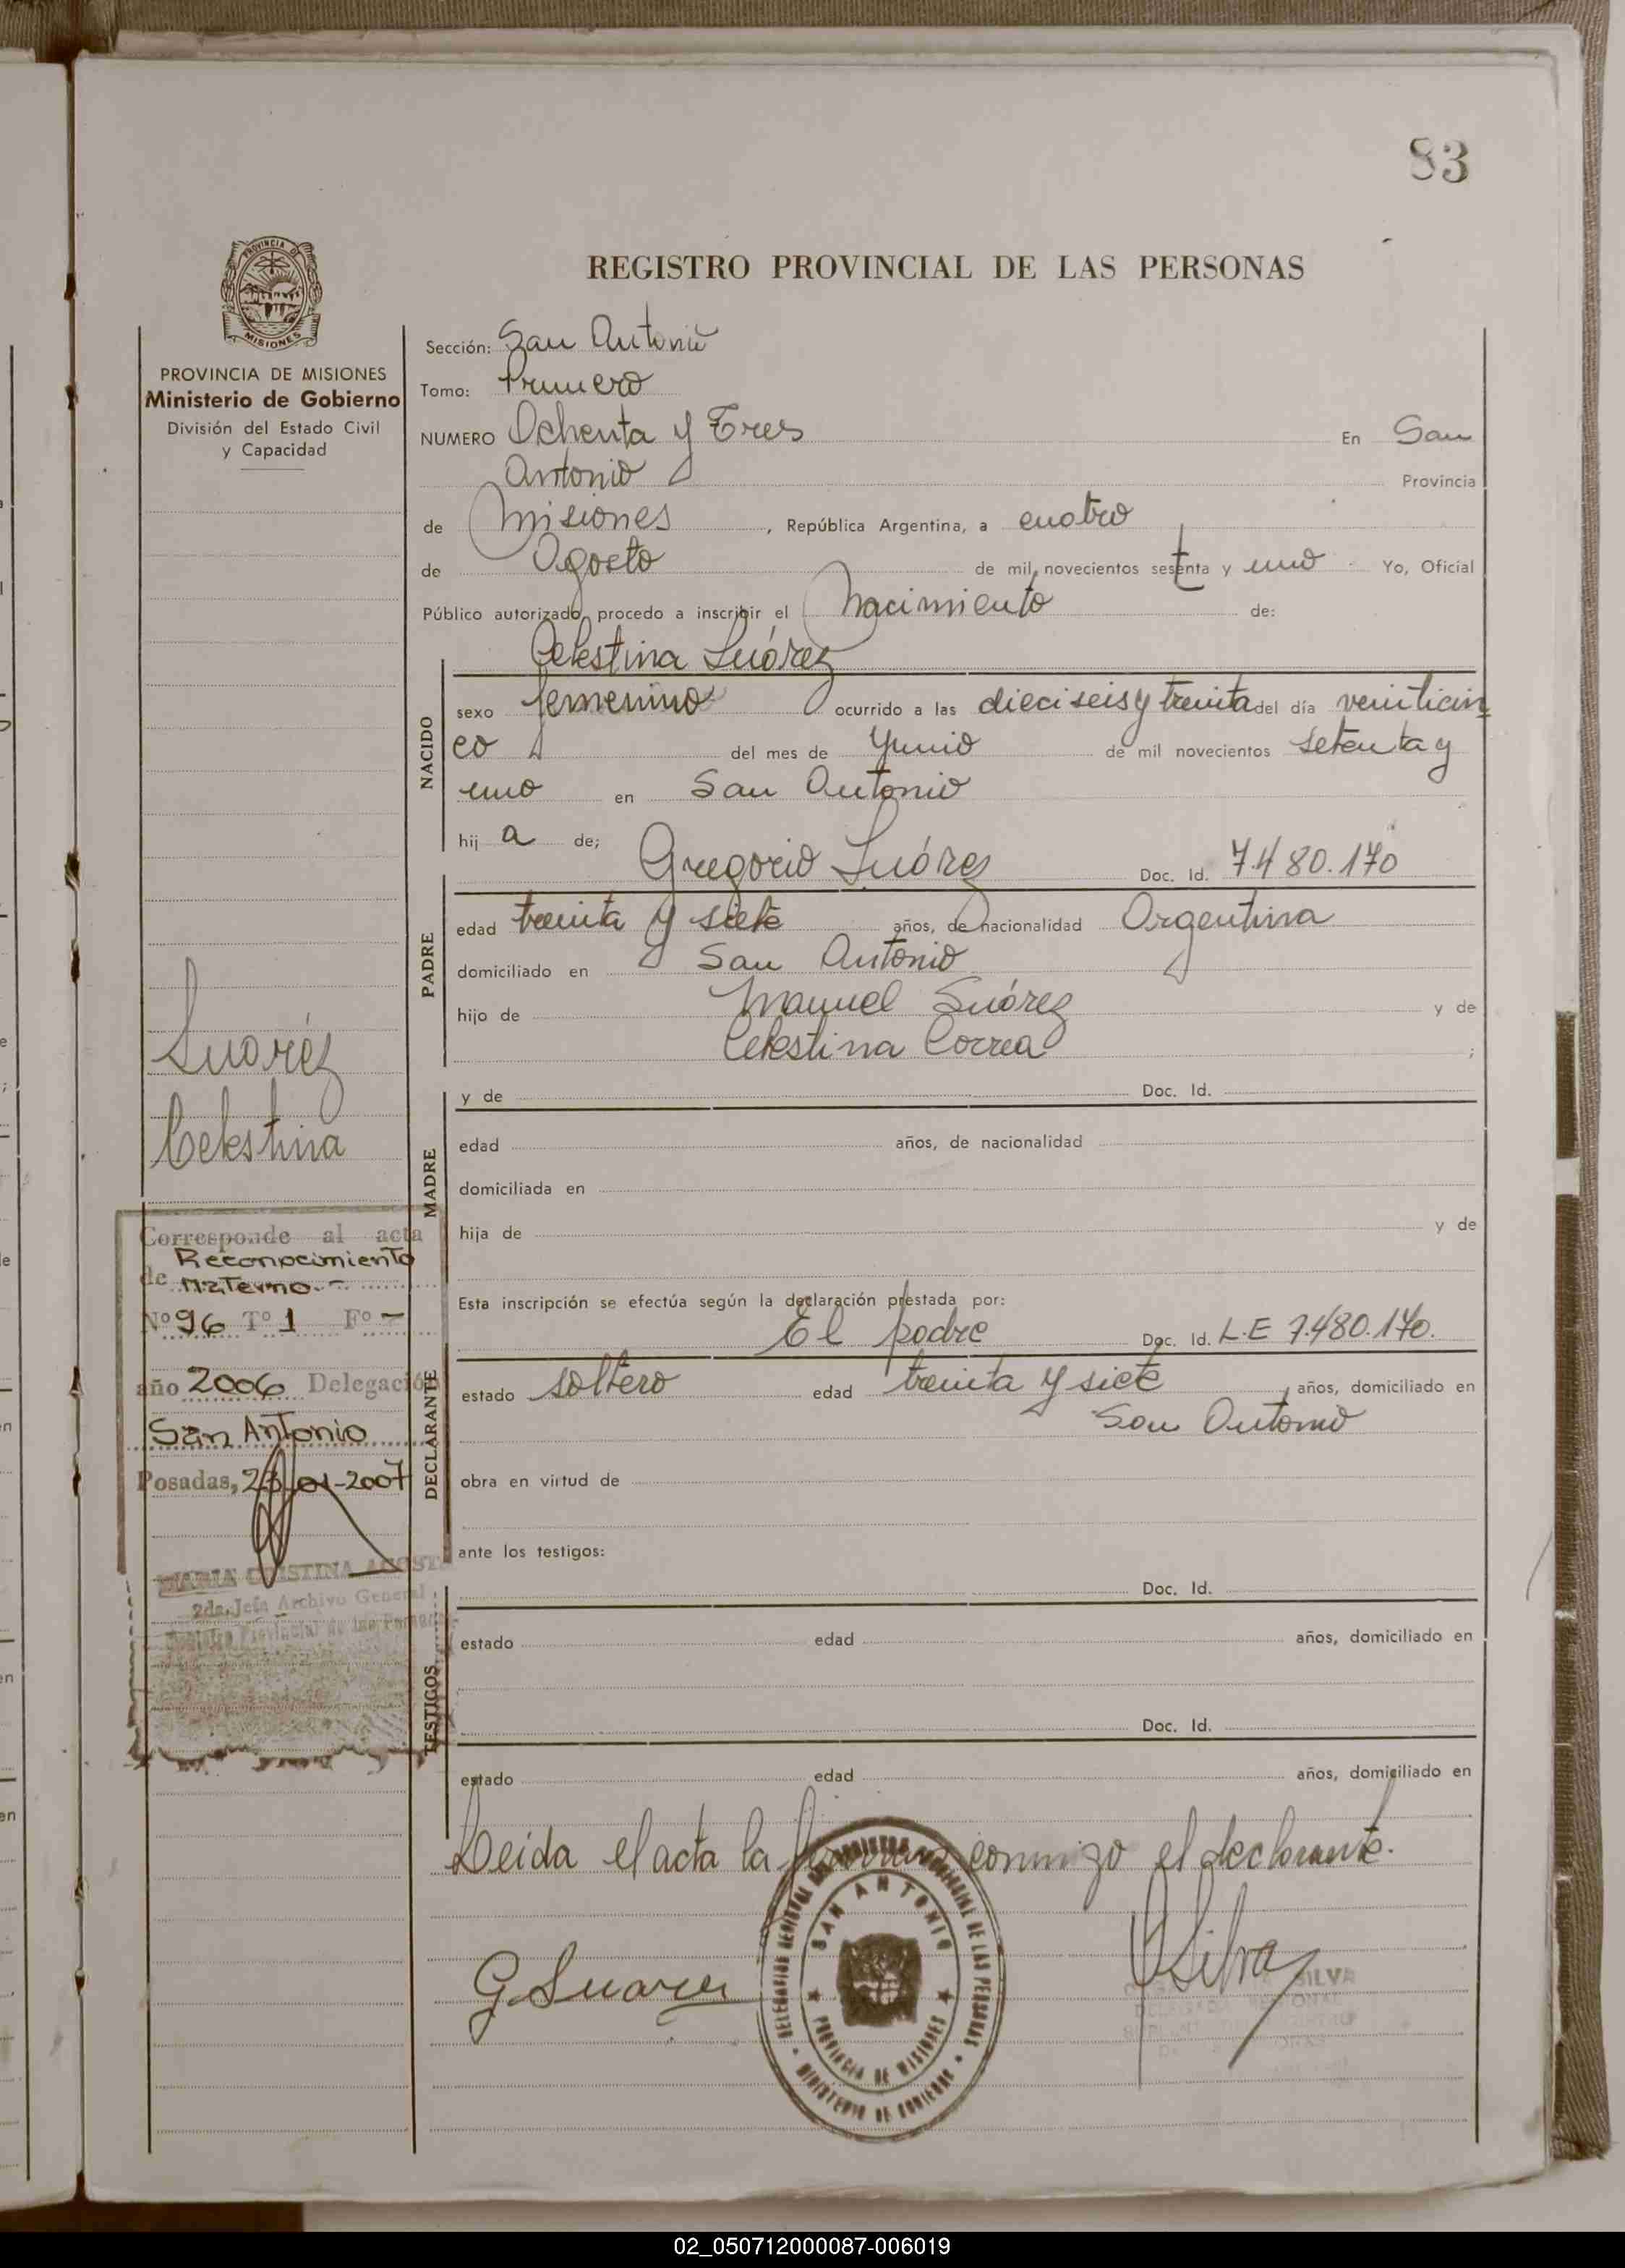 83
PROVINCIA DE
MISIONES
REGISTRO PROVINCIAL DE LAS PERSONAS
PROVINCIA DE MISIONES
Ministerio de Gobierno
División del Estado Civil
y Capacidad
Sección: San Antonio
Tomo: Primero
NUMERO Ochenta y Tres En San
Antonio Provincia
de Misiones, República Argentina, a cuatro
de Agosto de mil novecientos setenta y uno Yo, Oficial
Público autorizado, procedo a inscribir el Nacimiento de:
Celestina Suárez
NACIDO
sexo femenino ocurrido a las dieciseis y treinta del día veinticin
co del mes de Yunio de mil novecientos setenta y
uno en San Antonio
hij a de;
Gregorio Suárez Doc. Id. 7.480.170
PADRE
edad treinta y siete años, de nacionalidad Argentina
domiciliado en San Antonio
hijo de Manuel Suárez y de
Celestina Correa ;
MADRE
y de Doc. Id.
edad años, de nacionalidad
domiciliada en
hija de y de
Esta inscripción se efectúa según la declaración prestada por:
El padre Doc. Id. L.E 7.480.170.
DECLARANTE
estado soltero edad treinta y siete, años, domiciliado en
San Antonio
obra en virtud de
ante los testigos:
TESTIGOS
Doc. Id.
estado edad años, domiciliado en
Doc. Id.
estado edad años, domiciliado en
Leida el acta la conmigo el declarante.
G. Suarez
Silva
SILVA
SAN ANTONIO
PROVINCIA DE MISIONES
MINISTERIO DE GOBIERNO
DE LAS PERSONAS
Suaréz
Celestina
Corresponde al acta
de Reconocimiento
Materno.-
Nº 96 Tº 1 Fº -
año 2006 Delegación
San Antonio
Posadas, 23-01-2007
MARIA CRISTINA ACOSTA
2da. Jefa Archivo General
Registro Provincial de las Personas
02_050712000087-006019